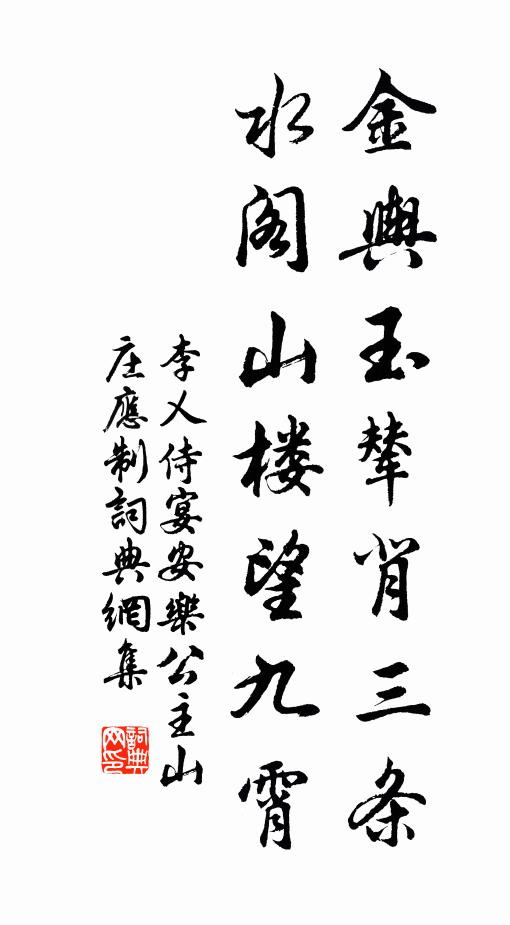 金輿玉輦背三条
水阁山楼望九霄
李乂侍宴安樂公主山
庄應制詞典網集
詞典
网印